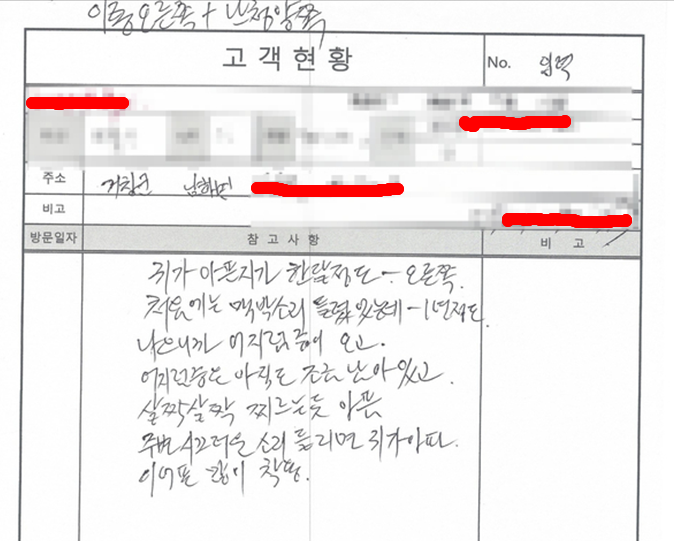 이통오른쪽 + 난청양쪽
고객현황
No. 입력
주소 거창군 남하면
비고
방문일자 참고사항 비고
귀가 아픈지가 한달정도 - 오른쪽.
처음에는 맥박소리 들렸었는데 - 1년정도
나으니까 어지럼증이 오고.
어지럼증은 아직도 조금 남아있고.
살짝살짝 찌르는듯 아픔
주변 시끄러운 소리 들리면 귀가아파.
이어폰 많이 착용.